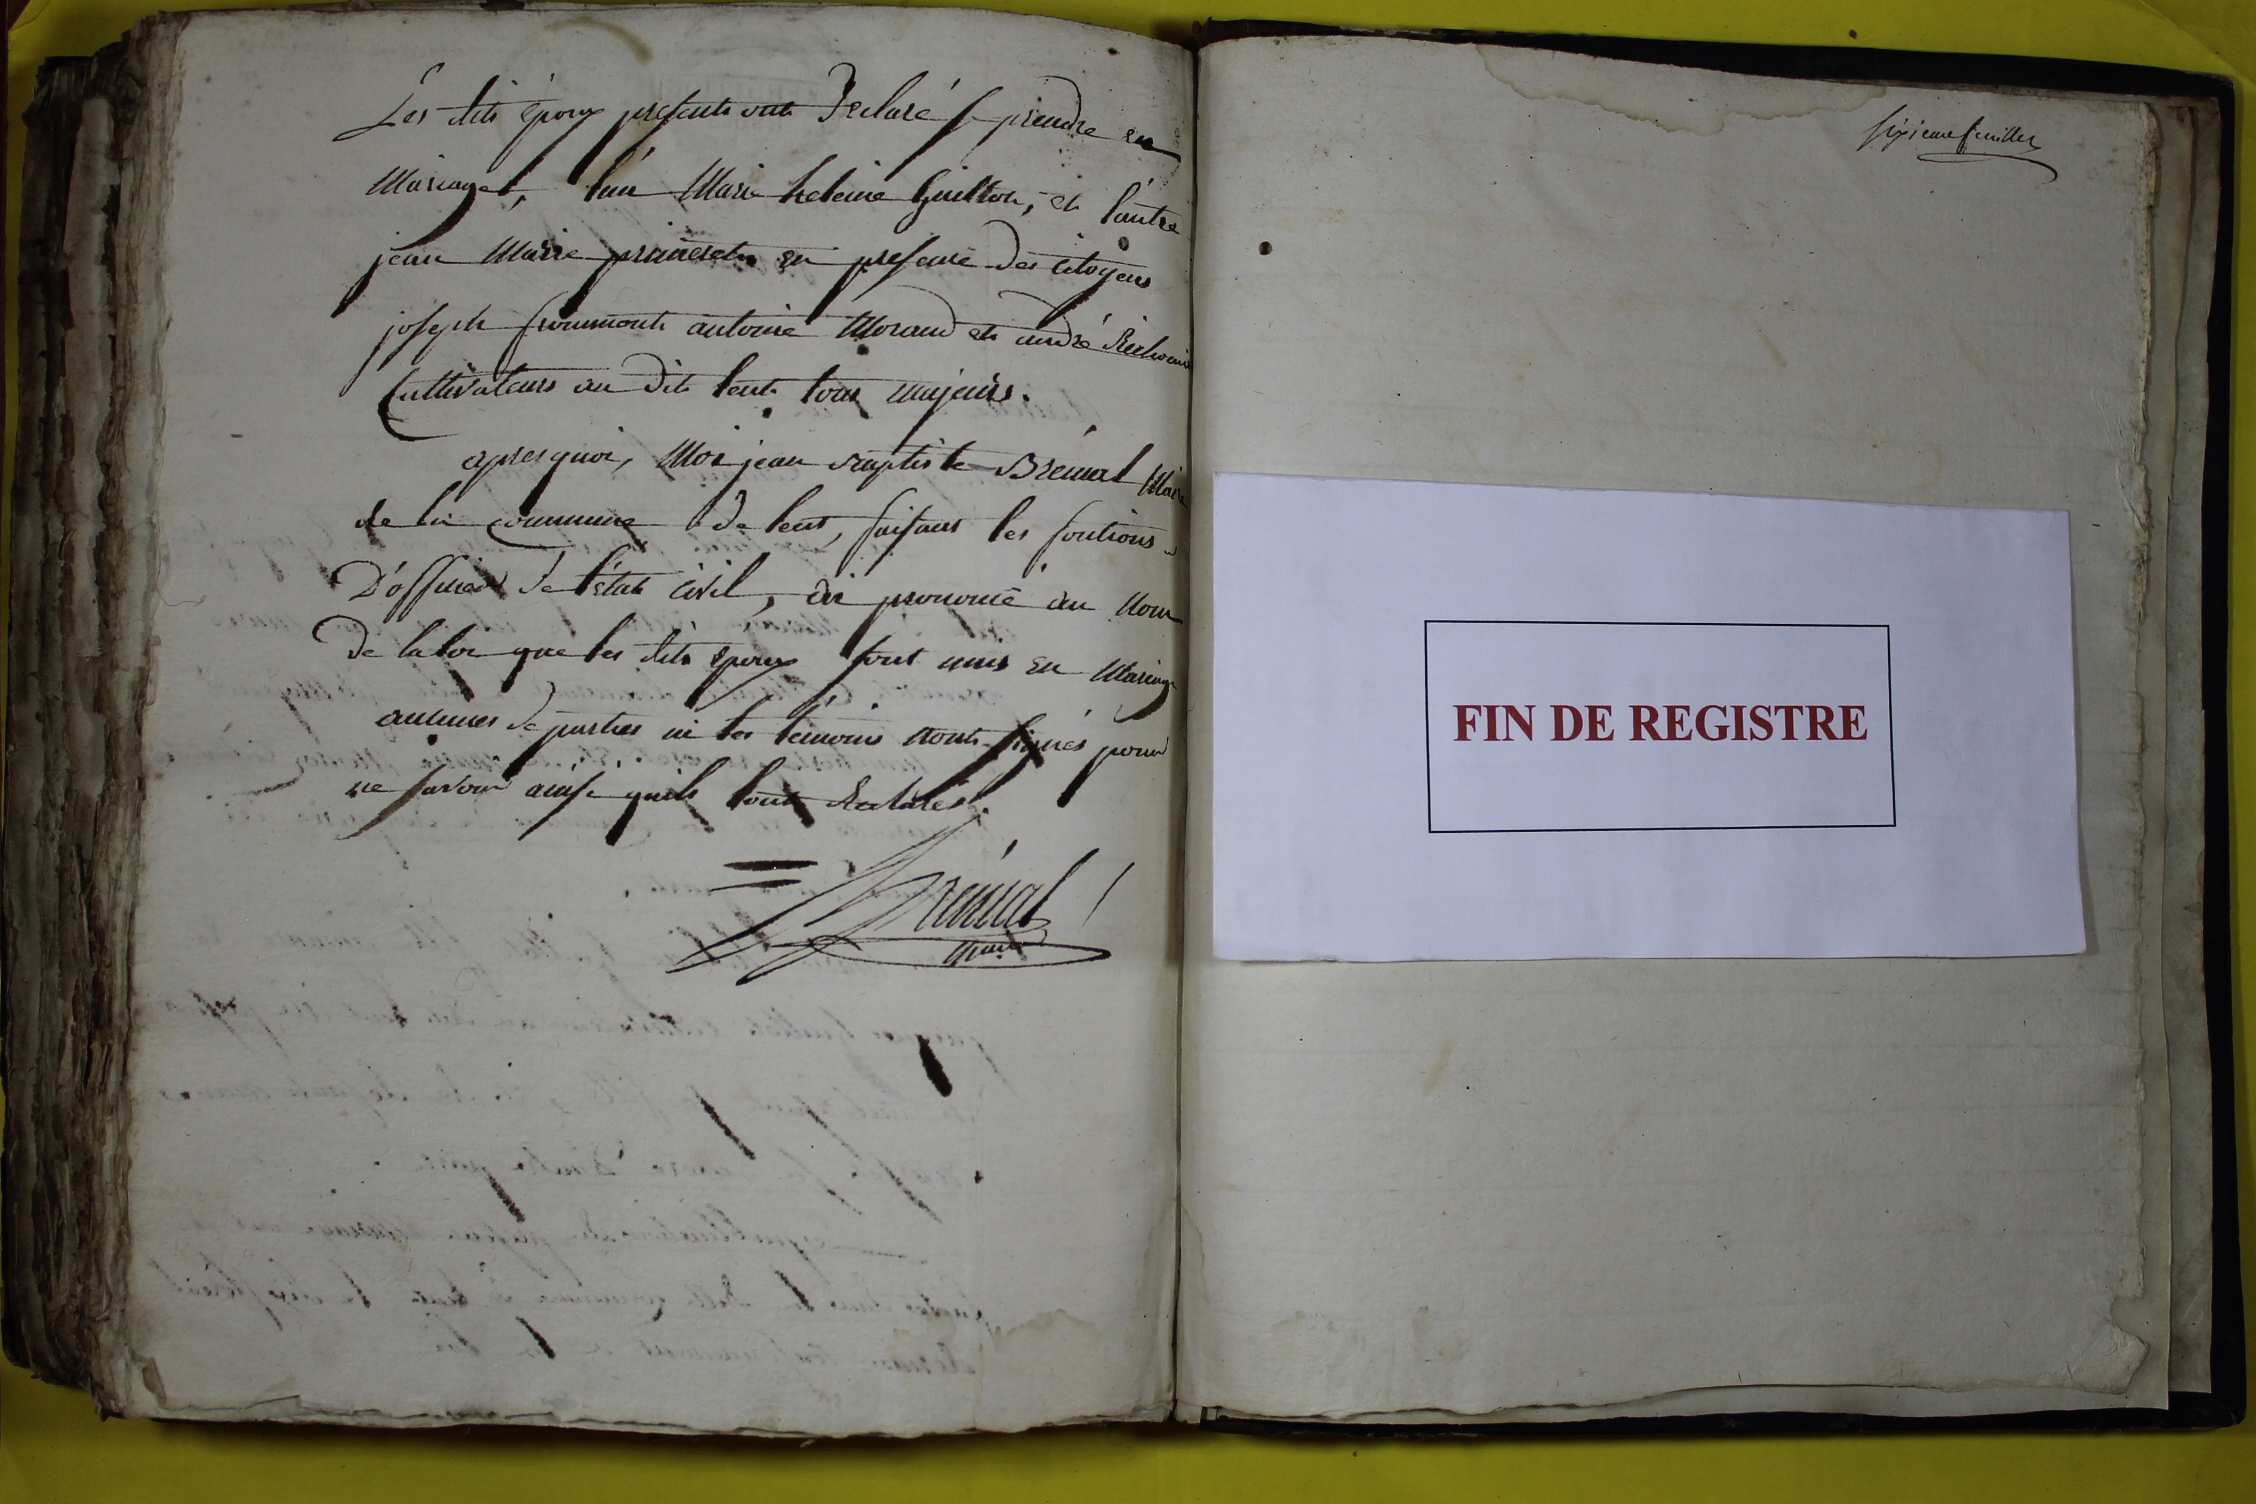 Les dits époux présents ont Declaré se prendre en
Mariage, l'un Marie heleine Guillot, et l'autre
jean Marie en presence des citoyens
joseph froumont antoine Morand et andré
Cultivateurs au dit lent tous majeurs.
apres quoi, Moi jean Baptiste Bréüal Maire
de la commune de lent, faisant les fontions
D'officier de l'état civil, ai prononcé au Nom
De la loi que les dits époux sont unis en Mariage
aucunes de parties ni les témoins n'ont signés pour
ne savoir ainsi qu'ils l'ont declarés.
Bréüal
Maire
sixieme feuillet
FIN DE REGISTRE